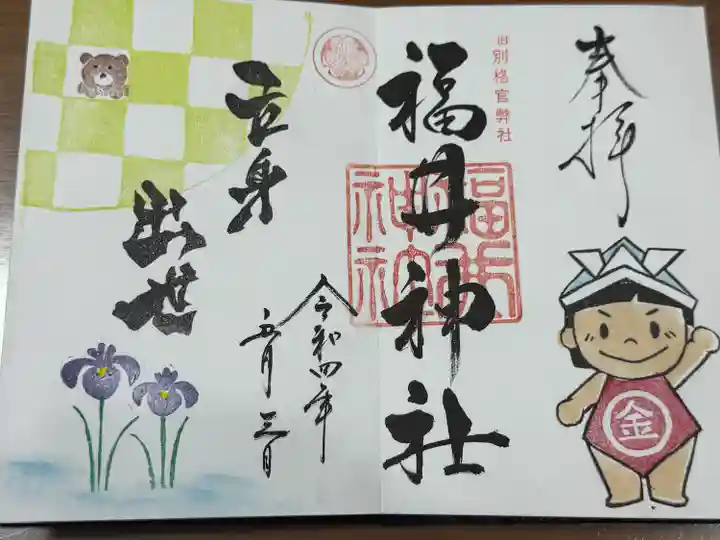 奉拝
旧別格官幣社
福井神社
福井神社
立身
出世
令和四年
五月三日
金